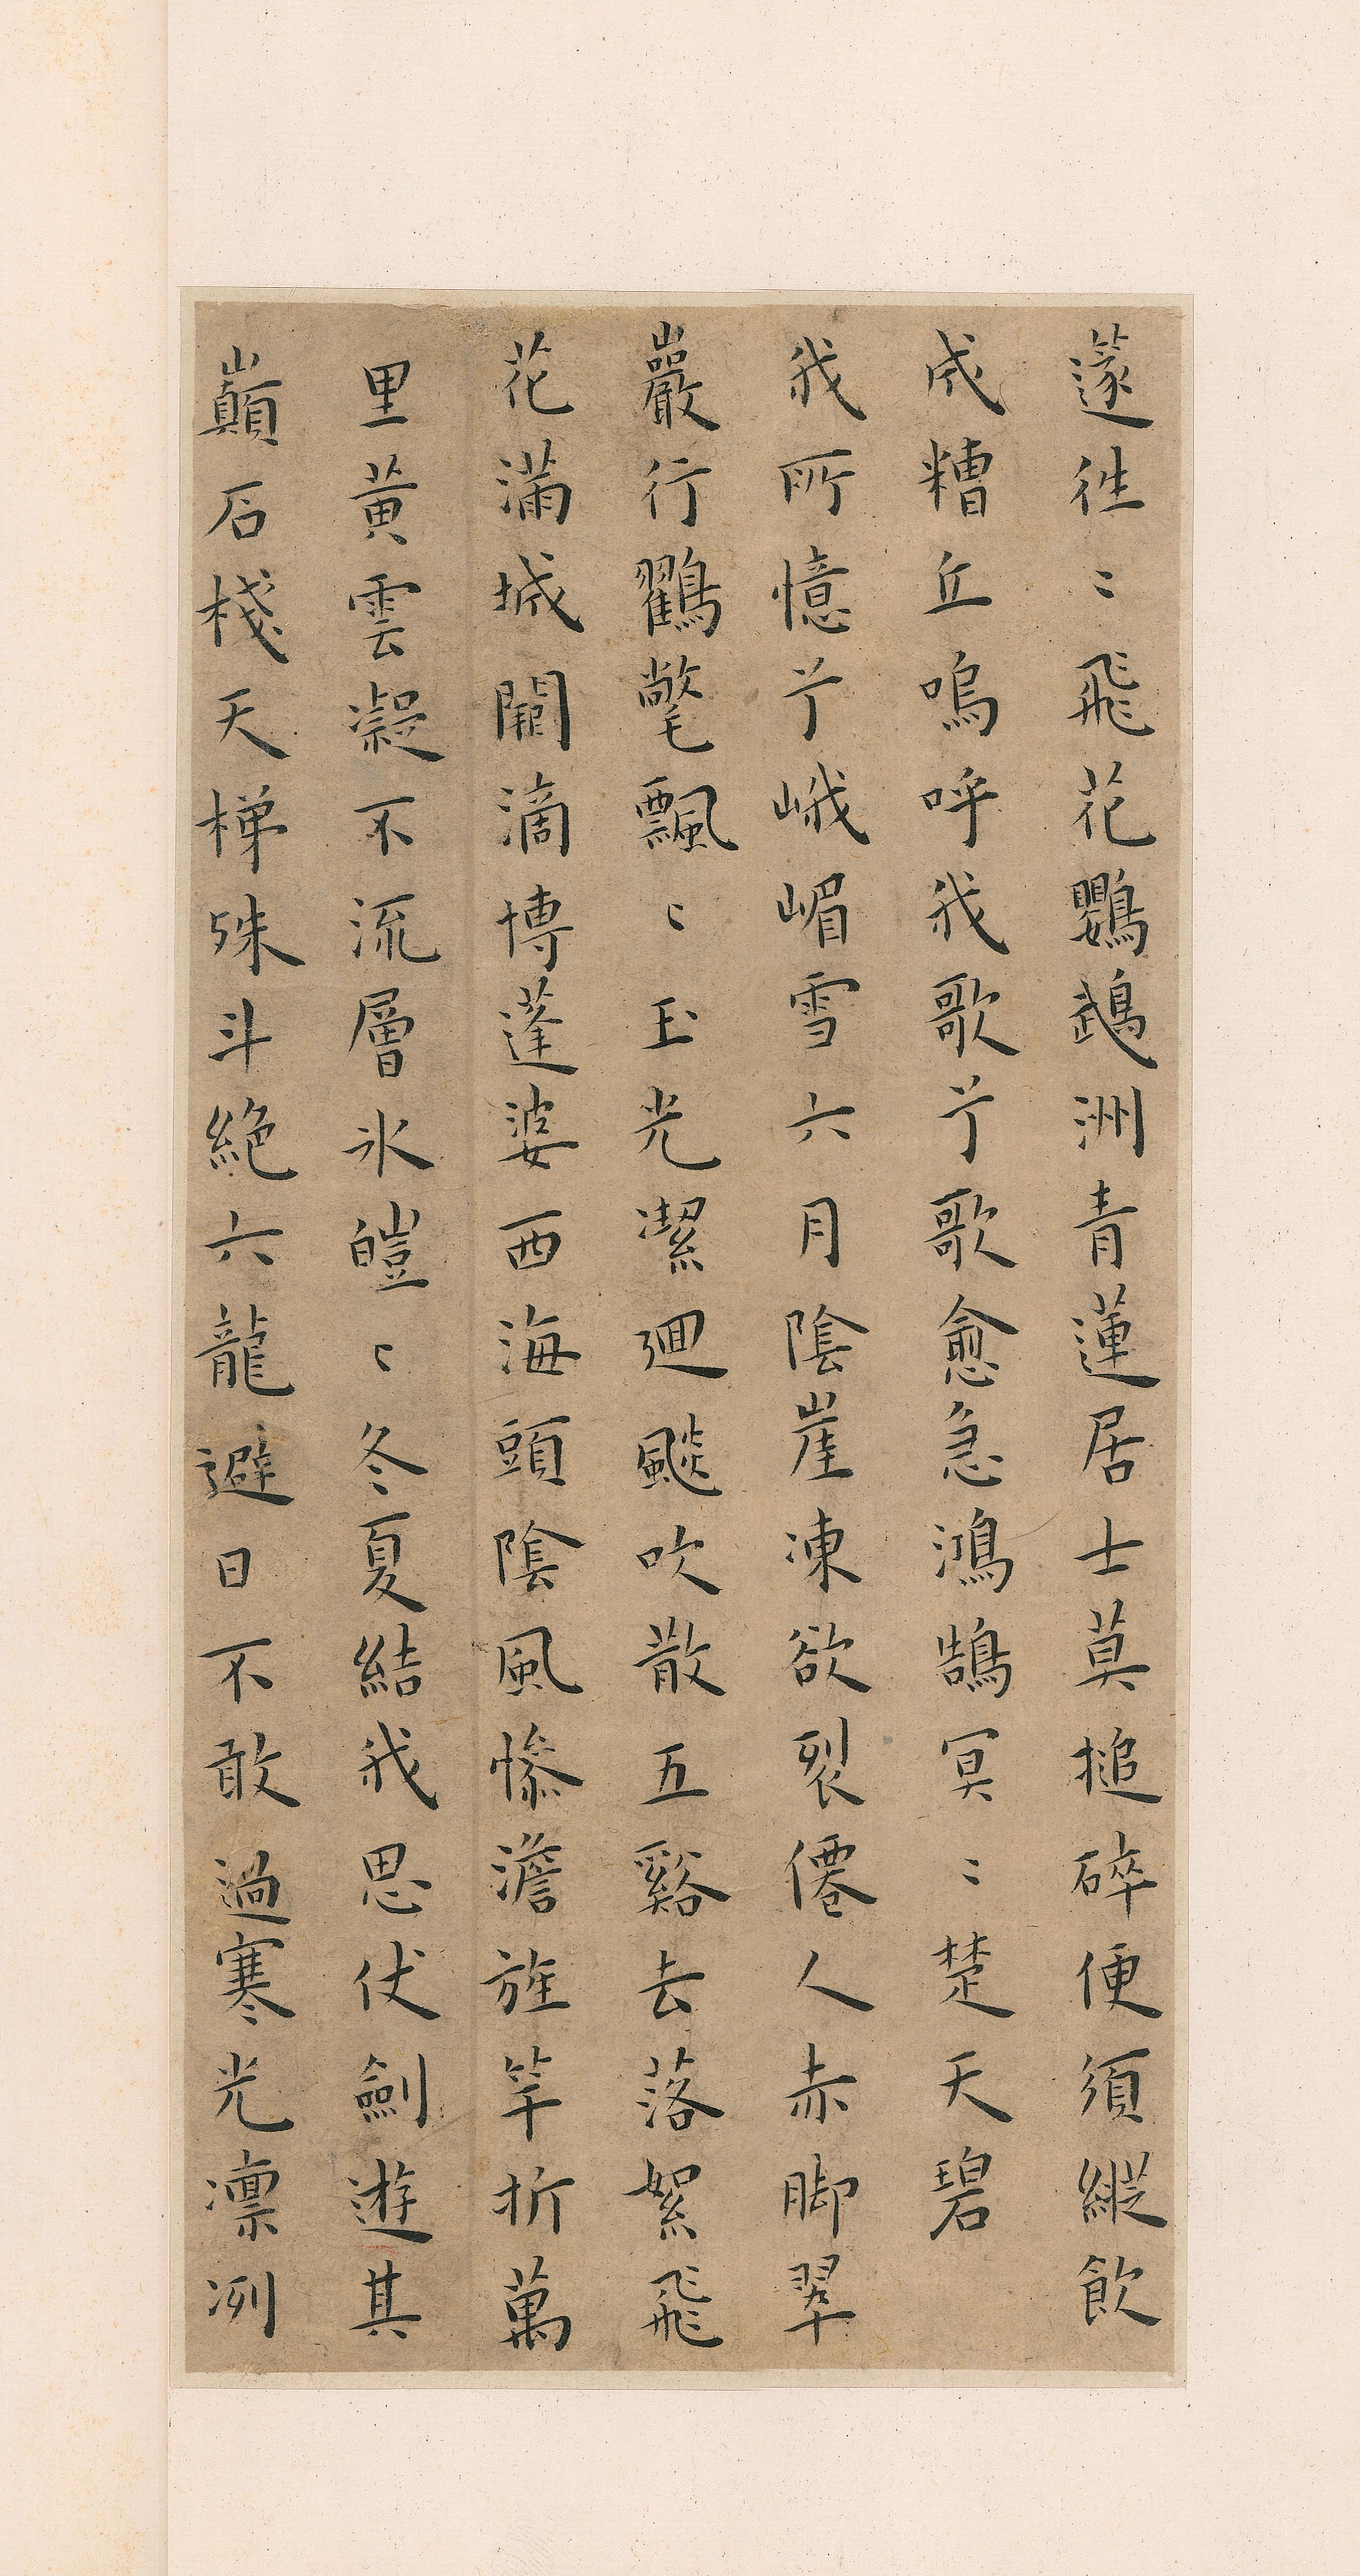 籧往〻飛花鸚鵡洲青蓮居士莫搥碎便須縱飲
成糟丘嗚呼我歌兮歌愈急鴻鵠冥〻楚天碧
我所憶兮峨嵋雪六月陰崖凍欲裂僊人赤脚翠
巖行鸛氅飄〻玉光潔迴飈吹散五谿去落絮飛
花滿城闕滴博蓬婆西海頭陰風慘澹旌竿折萬
里黃雲凝不流層冰皚〻冬夏結我思伏劍遊其
巔石棧天梯殊斗絕六龍避日不敢過寒光凜冽